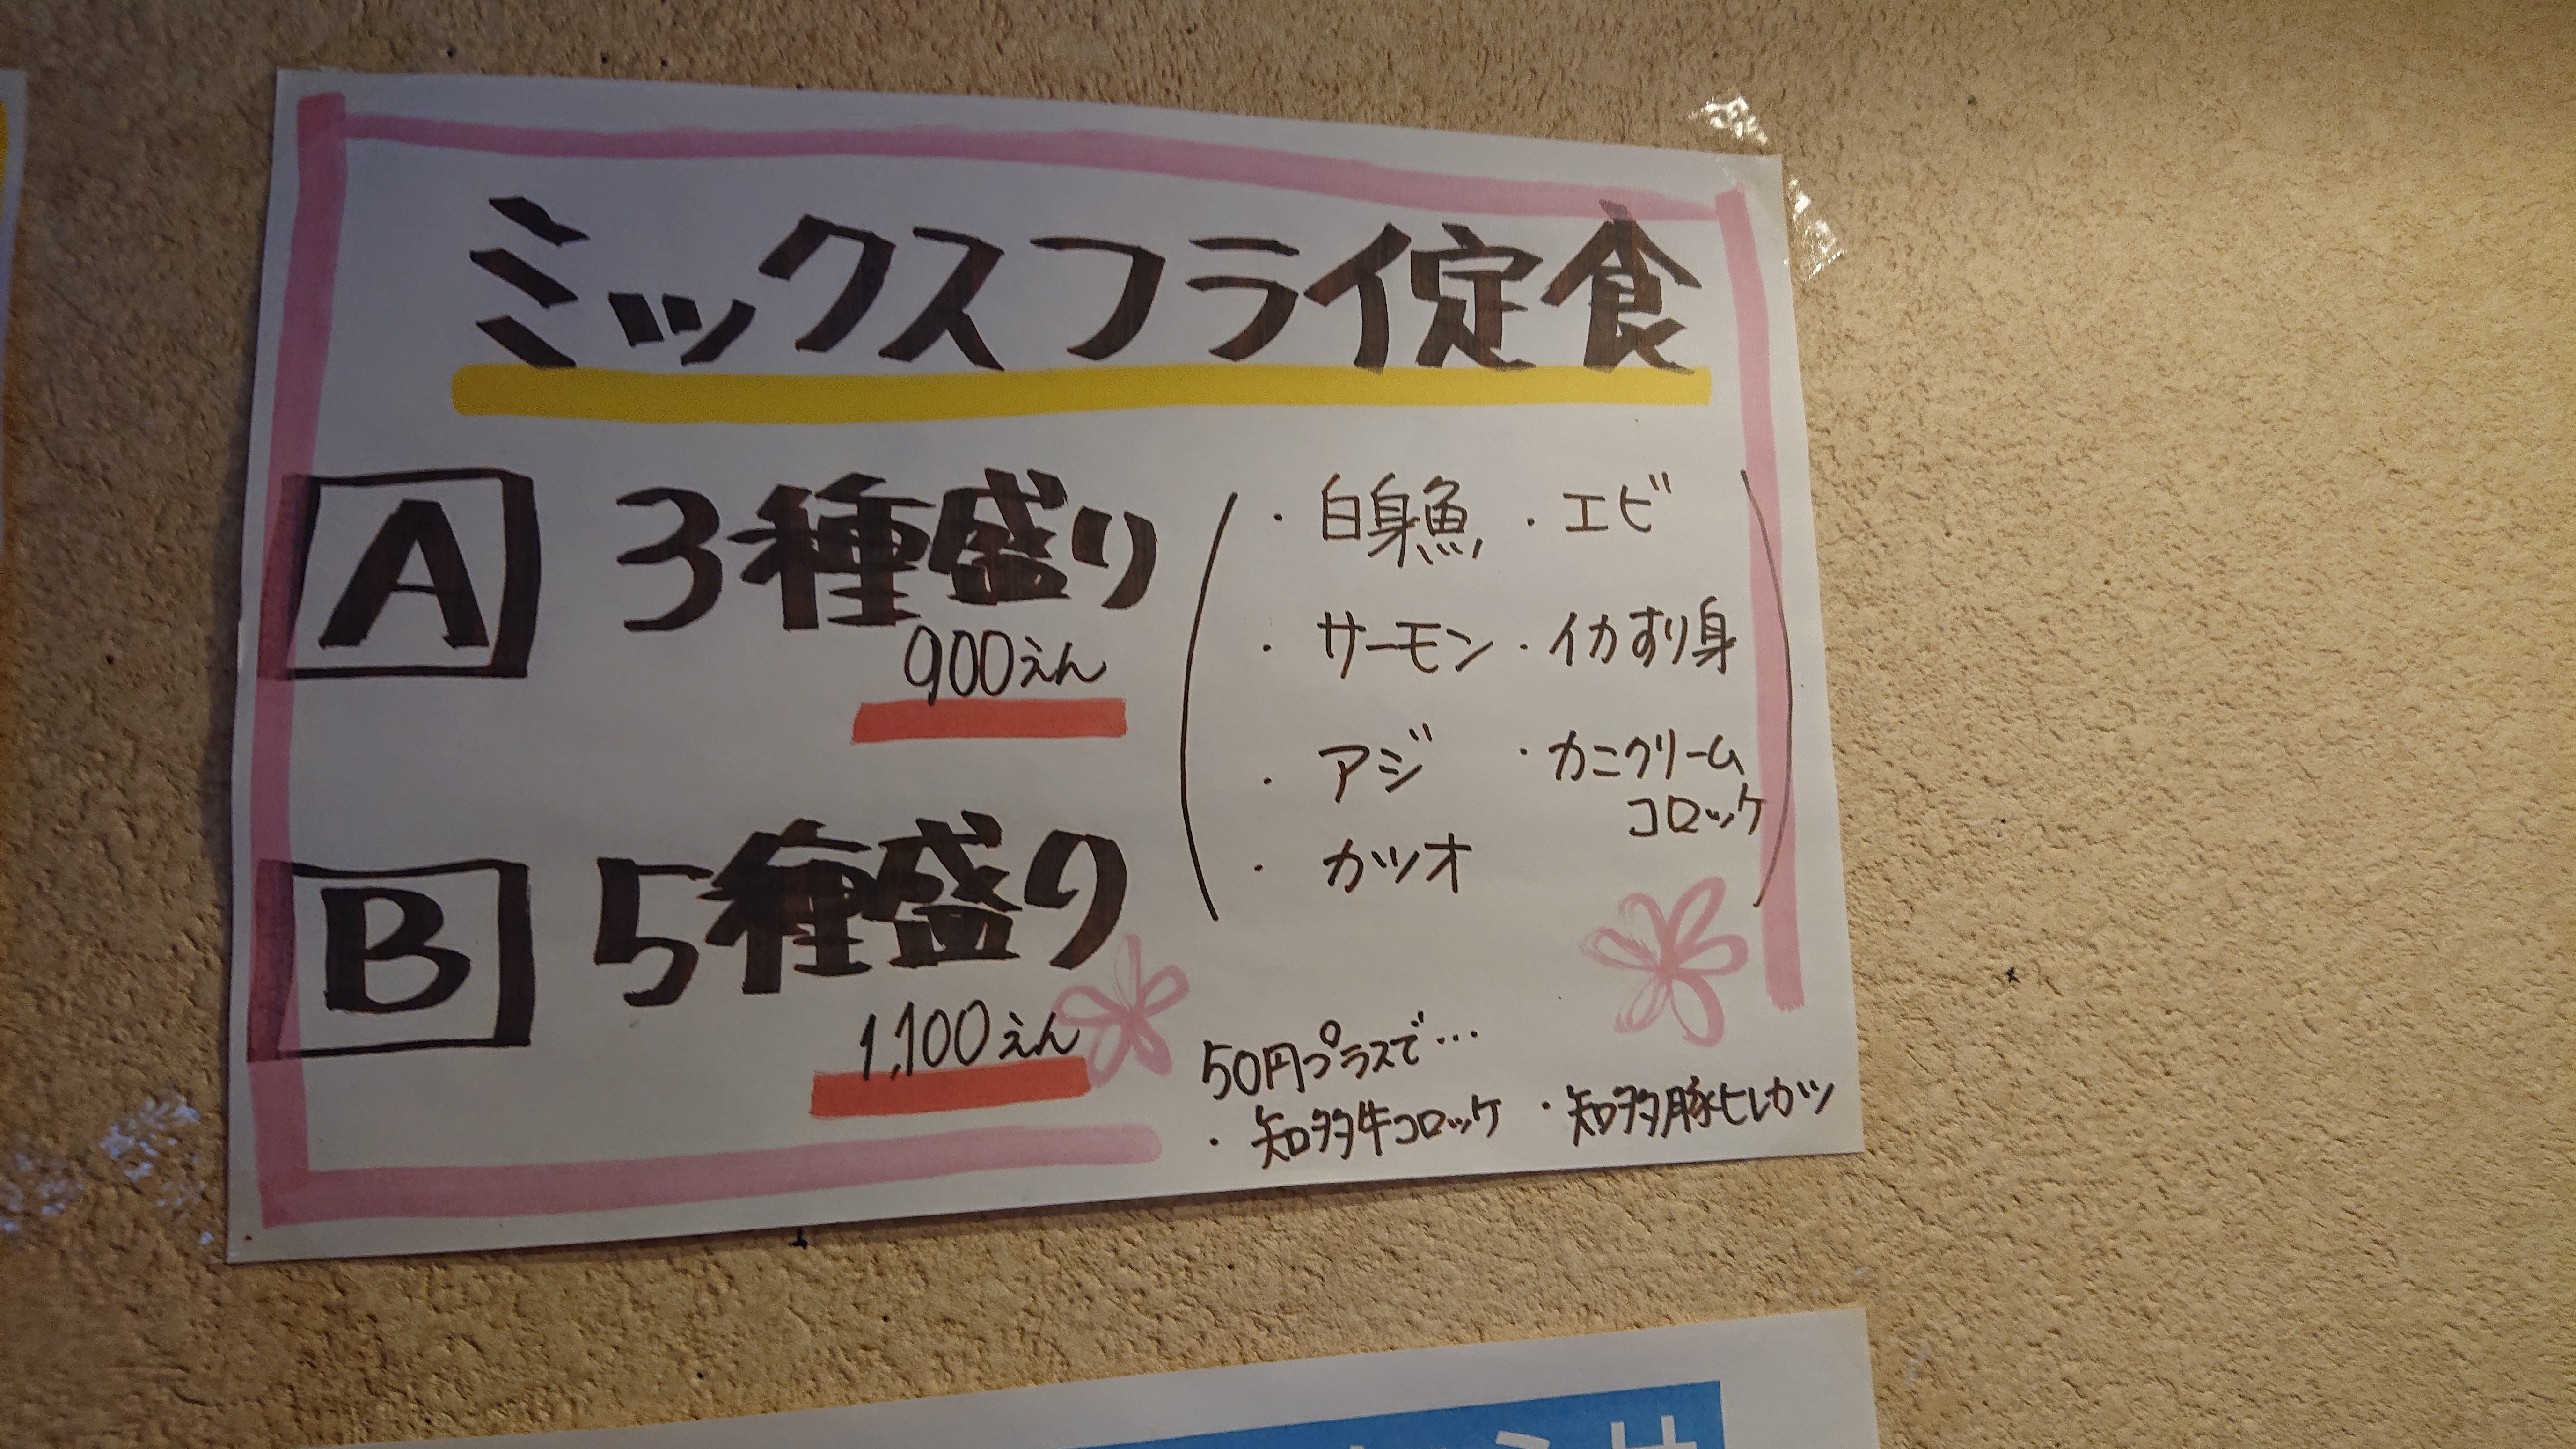 ミックスフライ定食
A 3種盛り
900えん
B 5種盛り
1,100えん
・白身魚 ・エビ
・サーモン ・イカすり身
・アジ ・カニクリーム
コロッケ
・カツオ
50円プラスで…
・知多牛コロッケ ・知多豚ヒレカツ